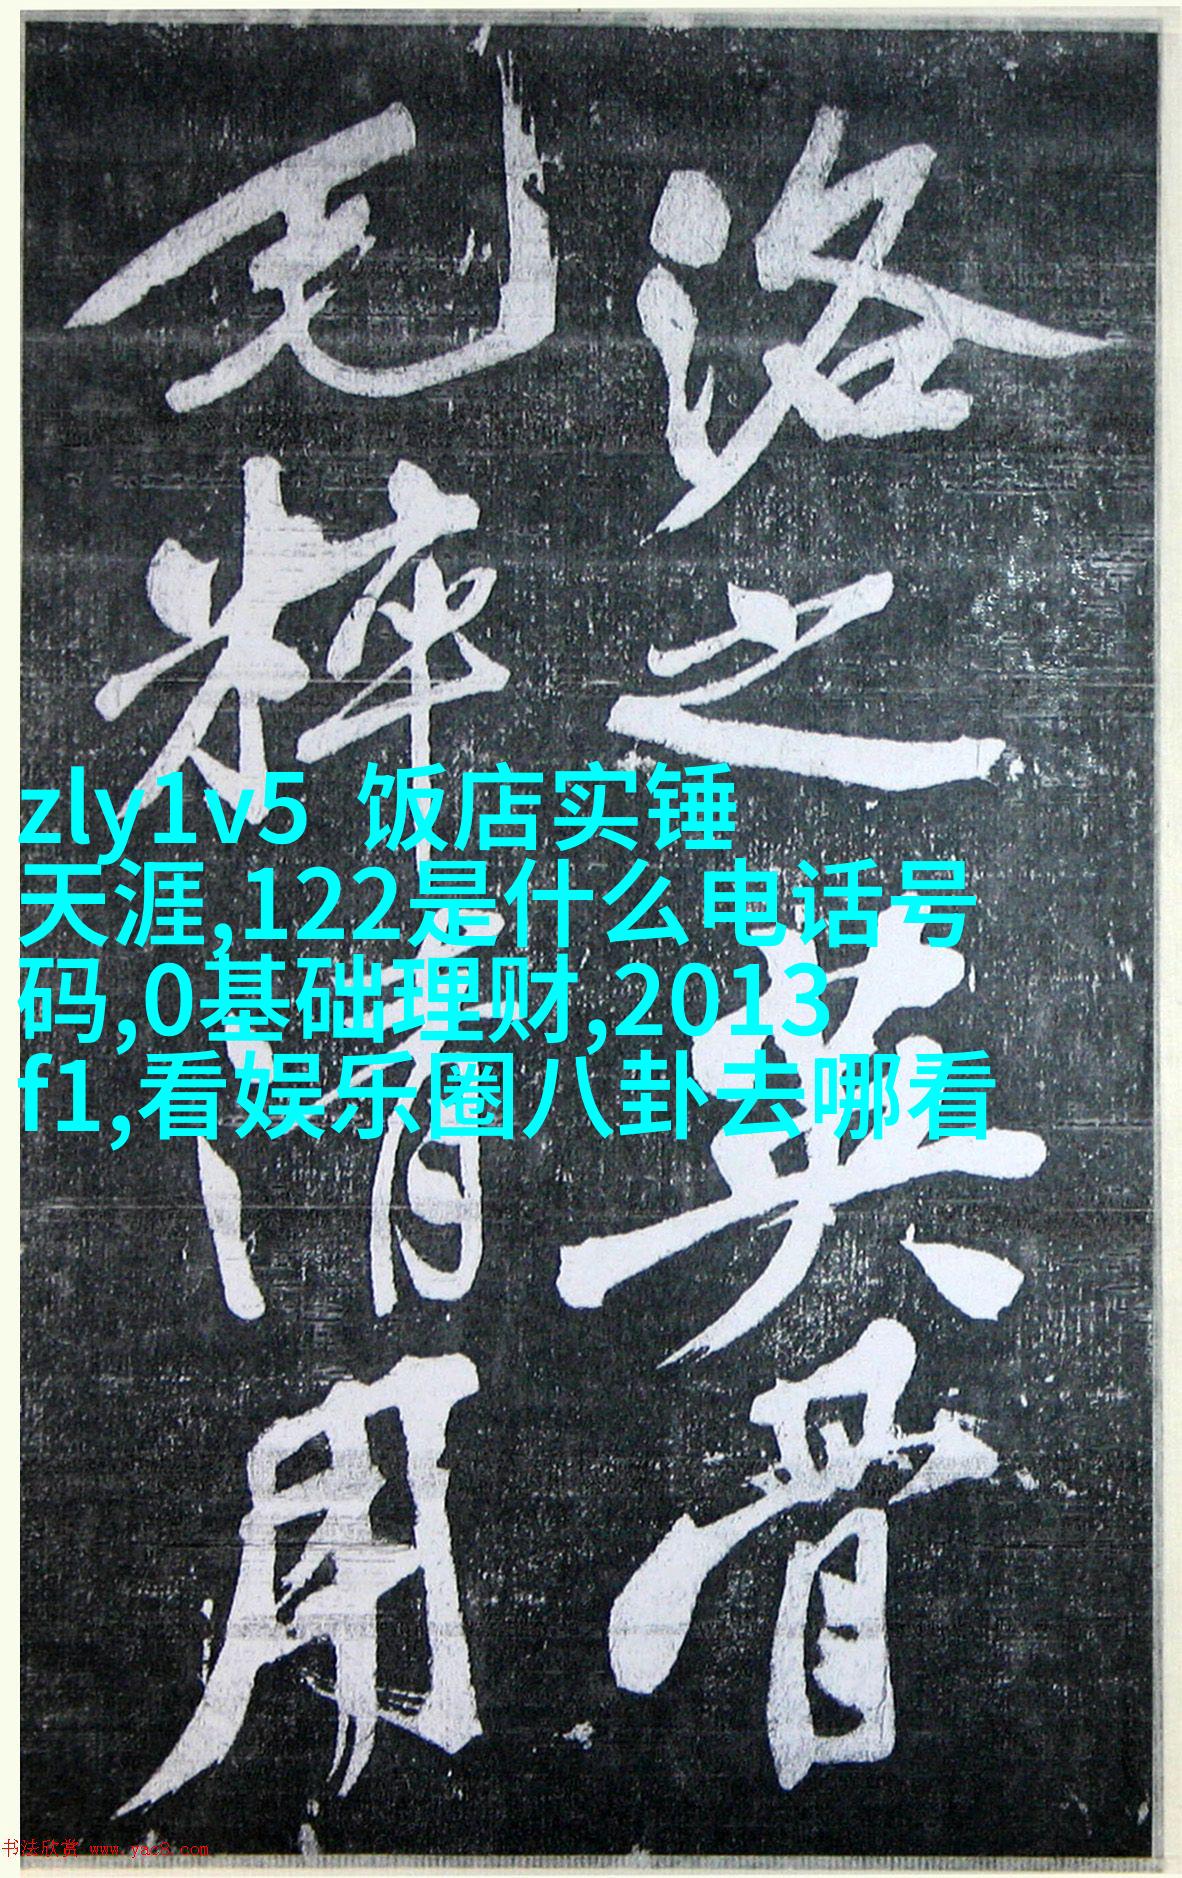 洛之英骨
毛粹清用
zly1v5 饭店实锤
天涯,122是什么电话号
码,0基础理财,2013
f1,看娱乐圈八卦去哪看
书法欣赏 www.yac8.com